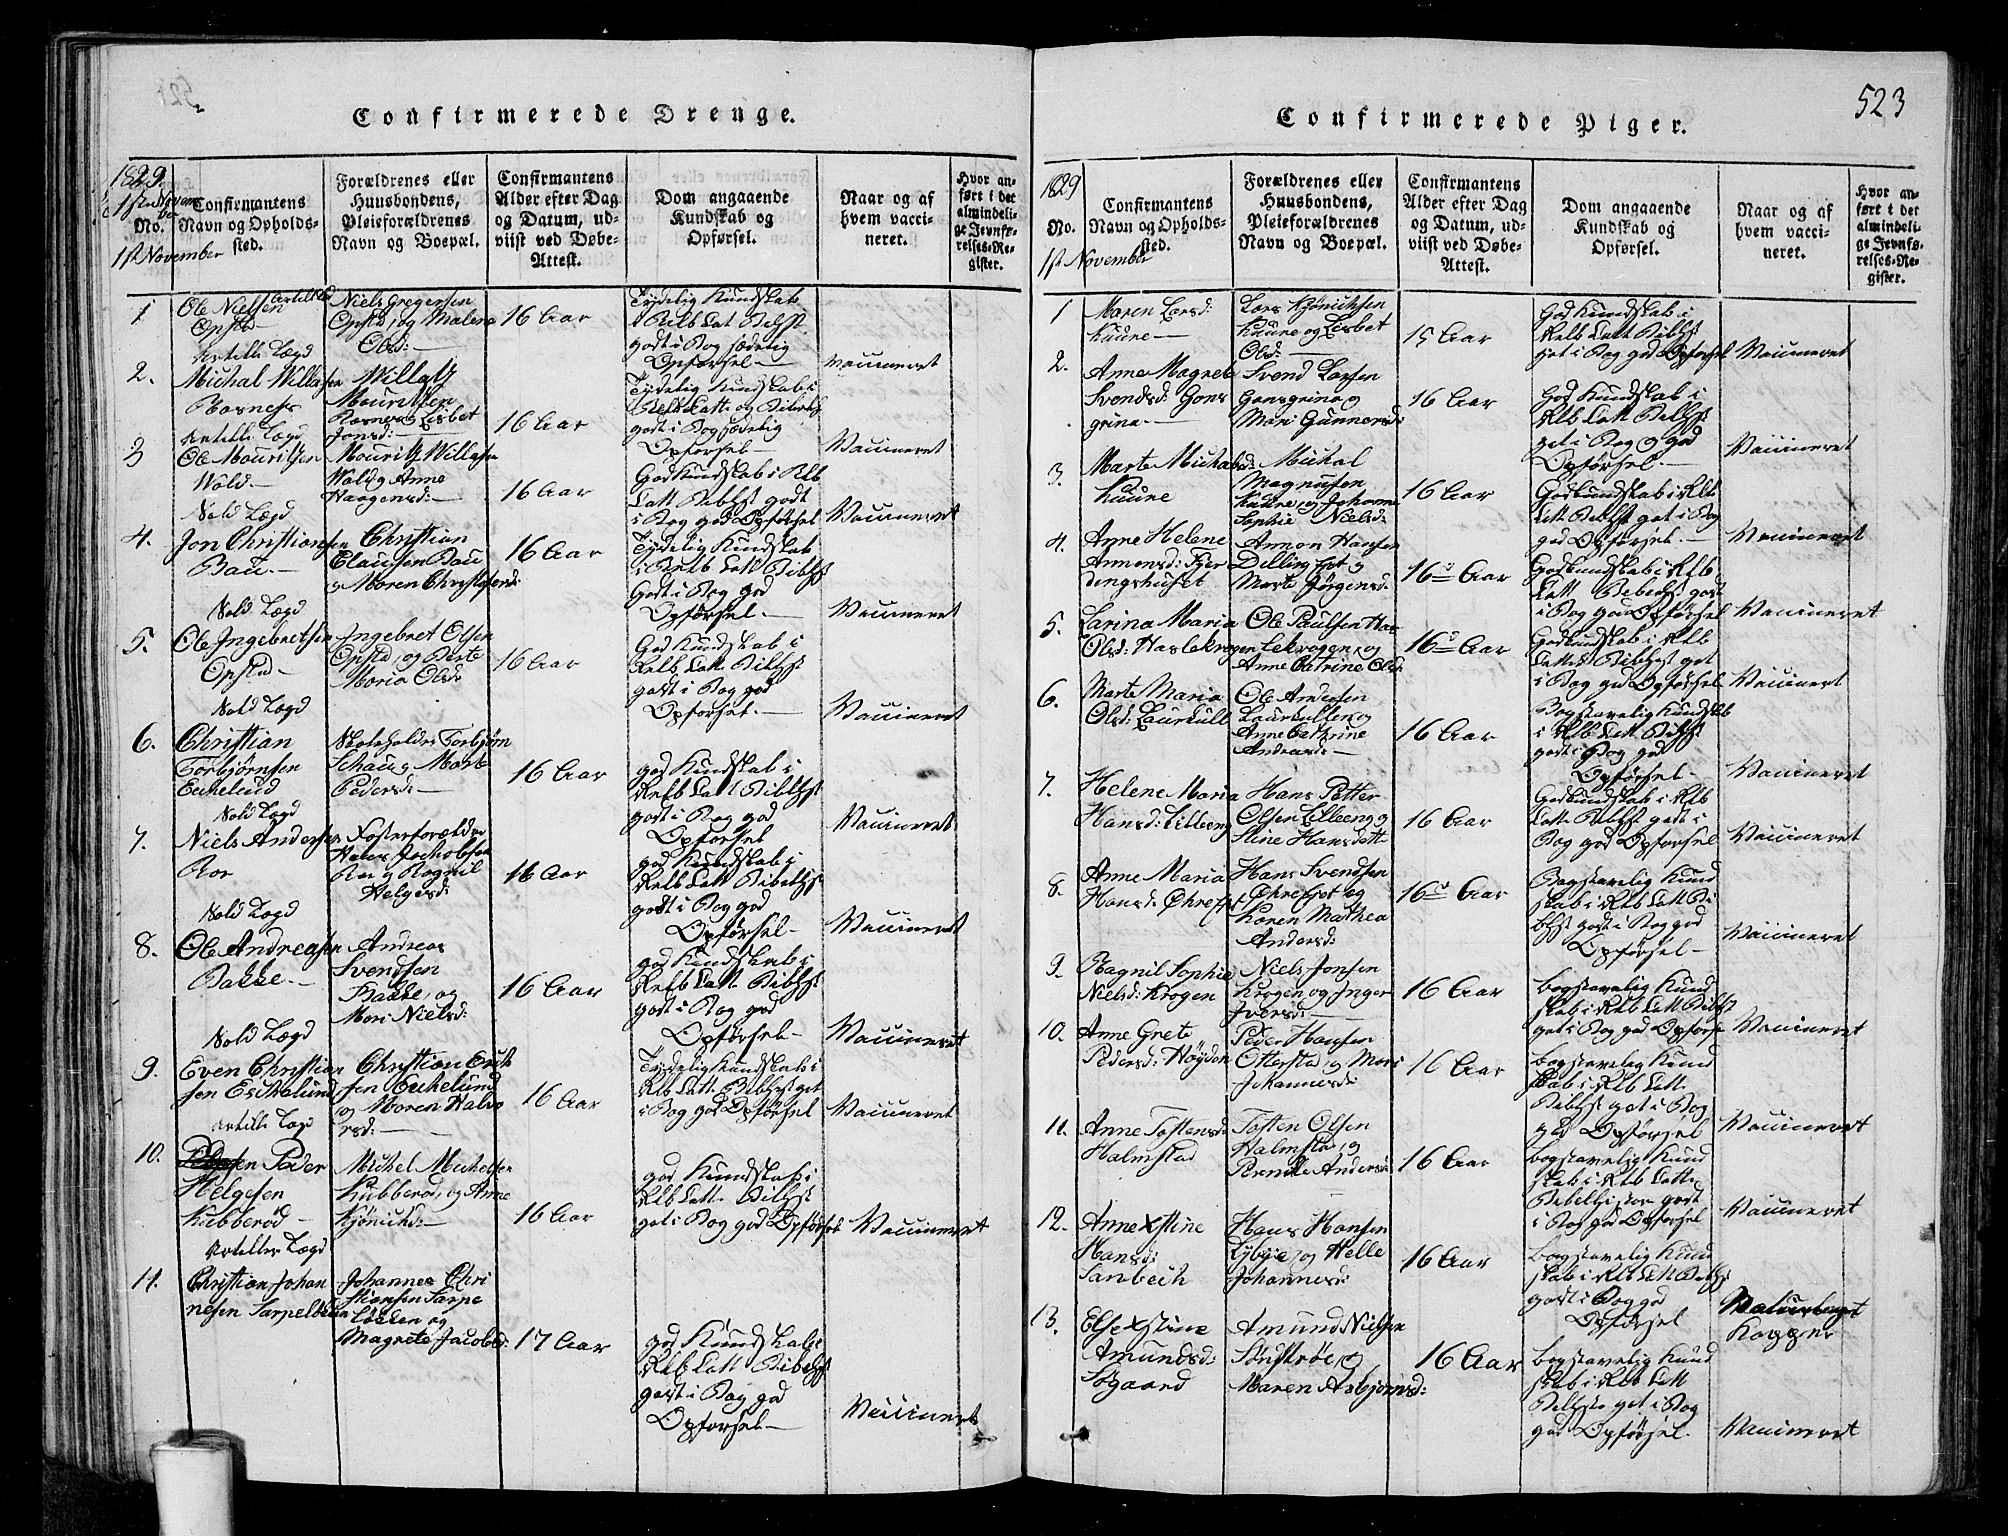 Confirmerede Drenge.
1829.
1ste November
No.
Confirmantens
Navn og Opholds-
sted.
Forældrenes eller
Huusbondens,
Pleieforældrenes
Navn og Boepæl.
Confirmantens
Alder efter Dag
og Datum, ud-
viist ved Døbe-
Attest.
Dom angaaende
Kundskab og
Opførsel.
Naar og af
hvem vacci-
neret.
Hvor an-
ført i det
almindeli-
ge Jevnfø-
relses-Re-
gister.
1ste November
1
Ole Nielsen
Opstd
Niels Gregersen
Opstd, og Malena
Olsd:
16 Aar
Tydelig Kundskab
i Relb Catt Biblst
godt i Bog sædelig
Opførsel
Vaccineret
2.
Artille Lægd
Michal Willasen
Willatz
Mouritsen
og Lisbet
Jonsd:
16 Aar
Tydelig Kundskab i
godt i Bog sædelig
Opførsel
Vaccineret
3
Artille Lægd
Ole Mouritzen
Wold
Mouritz Willasen
Wold og Anne
Haagensd:
16 Aar
God Kundskab i Rlb
Catt Biblst godt
i Bog god Opførsel
Vaccineret
4.
Nold Lægd
Jon Christiansen
Bau
Christian
Clausen Bau
og Maren Christofersd:
16 Aar
Tydelig Kundskab
i Relb Catt Biblst
Godt i Bog god
Opførsel
Vaccineret
5.
Nold Lægd
Ole Ingebretsen
Opstd
Ingebret Olsen
Opstd, og Berte
Maria Olsd:
16 Aar
God Kundskab i
Relb Catt Biblst
godt i Bog god
Opførsel
Vaccineret
6.
Nold Lægd
Christian
Torbjørnsen
Eschelund
Skoleholder Torbjørn
Schau og Marte
Pedersd:
16 Aar
god Kundskab i
Relb Catt Biblst
godt i Bog god
Opførsel
Vaccineret
7.
Nold Lægd
Niels Andersen
Roe
Fosterforældre
Hans Jachobsen
Roe og Ragnil
Helgesd:
16 Aar
god Kundskab i
Relb Catt Biblst
godt i Bog god
Opførsel
Vaccineret
8.
Nold Lægd
Ole Andreasen
Bakke
Andreas
Svendsen
Bakke, og
Mari Nielsd:
16 Aar
god Kundskab i
Relb Catt Biblst
godt i Bog god
Opførsel
Vaccineret
9.
Nold Lægd
Even Christian
sen Eschelund
Christian Erik
sen Eschelund
og Maren Halvo
rsd:
16 Aar
Tydelig Kundskab i
Rlb Catt Biblst get
i Bog god Opførsel
Vaccineret
10.
Artille Lægd
Peder
Helgesen
Kubberød
Michel Michelsen
Kubberød, og Anne
16 Aar
god Kundskab i
Rlb Catt Biblst
get i Bog god Opførsel
Vaccineret
11.
Artilleri Lægd
Christian Johan
nesen Sarpeløkken
Johannes Chri
stiansen Sarpe
løkken og
Magrete Jacobsd:
17 Aar
god Kundskab i
Rlb Catt Biblst
godt i Bog god
Opførsel
Vaccineret
Confirmerede Piger.
523
1829
No.
1st November
Confirmantens
Navn og Opholds-
sted.
Forældrenes eller
Huusbondens,
Pleieforældrenes
Navn og Boepæl.
Confirmantens
Alder efter Dag
og Datum, ud-
viist ved Døbe-
Attest.
Dom angaaende
Kundskab og
Opførsel.
Naar og af
hvem vacci-
neret.
Hvor an-
ført i det
almindeli-
ge Jevnfø-
relses-Re-
gister.
1
Maren Larsd:
Kuure
Lars Kjønichsen
Kuure og Lisbet
Olsd:
15 Aar
God Kundskab i
Relb Catt Biblst
get i Bog god Opførsel
Vaccineret
2.
Anne Magrete
Svendsd: Gans
grina
Svend Larsen
Gansgrina og
Mari Gunnersd:
16 Aar
God Kundskab i
Rlb Catt Biblst
get i Bog og god
Opførsel
Vaccineret
3.
Marte Michalsd:
Kuure
Michal
Magnusen
Kuure, og Johanne
Sophie Nielsd:
16 Aar
God Kundskab i Rlb
Catt Biblst get i Bog
god Opførsel
Vaccineret
4.
Anne Helene
Amonsd: Fjer
dingshuset
Ammon Hansen
Dilling get og
Marte Jørgensd:
16 Aar
God kundskab i Rlb
Catt Biblst godt
i Bog god Opførsel
Vaccineret
5.
Larina Maria
Olsd: Haslekrogen
Ole Paulsen Has
lekrogen, og
Anne Catrine Olsd:
16 Aar
God kundskab i Rlb
Catt Biblst get
i Bog god Opførsel
Vaccineret
6.
Marte Maria
Olsd: Laurkull
Ole Andersen
Laurkullen og
Anne Cathrine
Andersd:
16 Aar
Bogstavelig Kundskb
i Rlb Catt Biblst
godt i Bog god
Opførsel
Vaccineret
7.
Helene Maria
Hansd: Lilleeng
Hans Petter
Olsen Lilleeng og
Stine Hansdatt
16 Aar
God kundskab i Rlb
Catt Biblst godt i
Bog god Opførsel
Vaccineret
8.
Anne Maria
Hansd: Øhre
Hans Svendsen
Øhre get og
Karen Mathea
Andersd:
16 Aar
Bogstavelig Kund
skab i Rlb Catt Bi
blst godt i Bog god
Opførsel
Vaccineret
9.
Ragnil Sophie
Nielsd: Krogen
Niels Jonsen
Krogen, og Inger
Iversd:
16 Aar
bogstavelig Kund
skab i Rlb Catt Biblst
get i Bog god Opførse
Vaccineret
10.
Anne Grete
Pedersd: Høyden
Peder Hansen
Otterstad og Mari
Johannesd:
16 Aar
bogstavelig Kund
skab i Rlb Catt
Biblst get i Bog
god Opførsel
Vaccineret
11.
Anne Tostensd:
Halmstad
Tosten Olsen
Halmstad, og
Pernille Andersd:
16 Aar
bogstavelig Kund
skab i Rlb Catt
Bibelhistorie godt
i Bog god Opførsel
Vaccineret
12.
Anne Xstine
Hansd:
Sanbech
Hans Hansen
Lybye, og Helle
Johannesd:
16 Aar
bogstavelig Kund
skab i Rlb Catt Biblst
godt i Bog god
Opførsel
Kopper
13.
Else Xstine
Amundsd:
Søgaard
Amund Nielsen
Sundstrøe, og
Maren Asbjørnsd:
16 Aar
bogstavelig Kund
skab i Rlb Catt
Biblst get i Bog
god Opførsel
Vaccineret